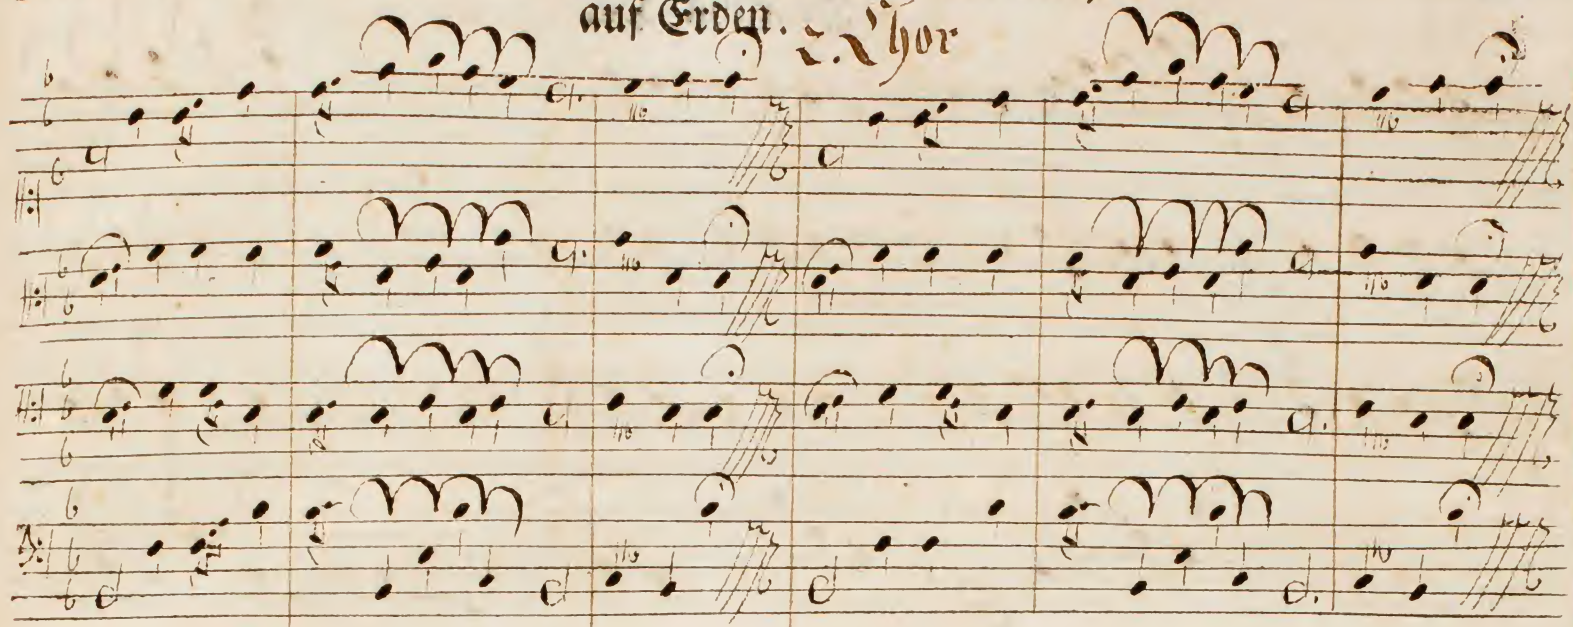 auf Erden.
2. Chor